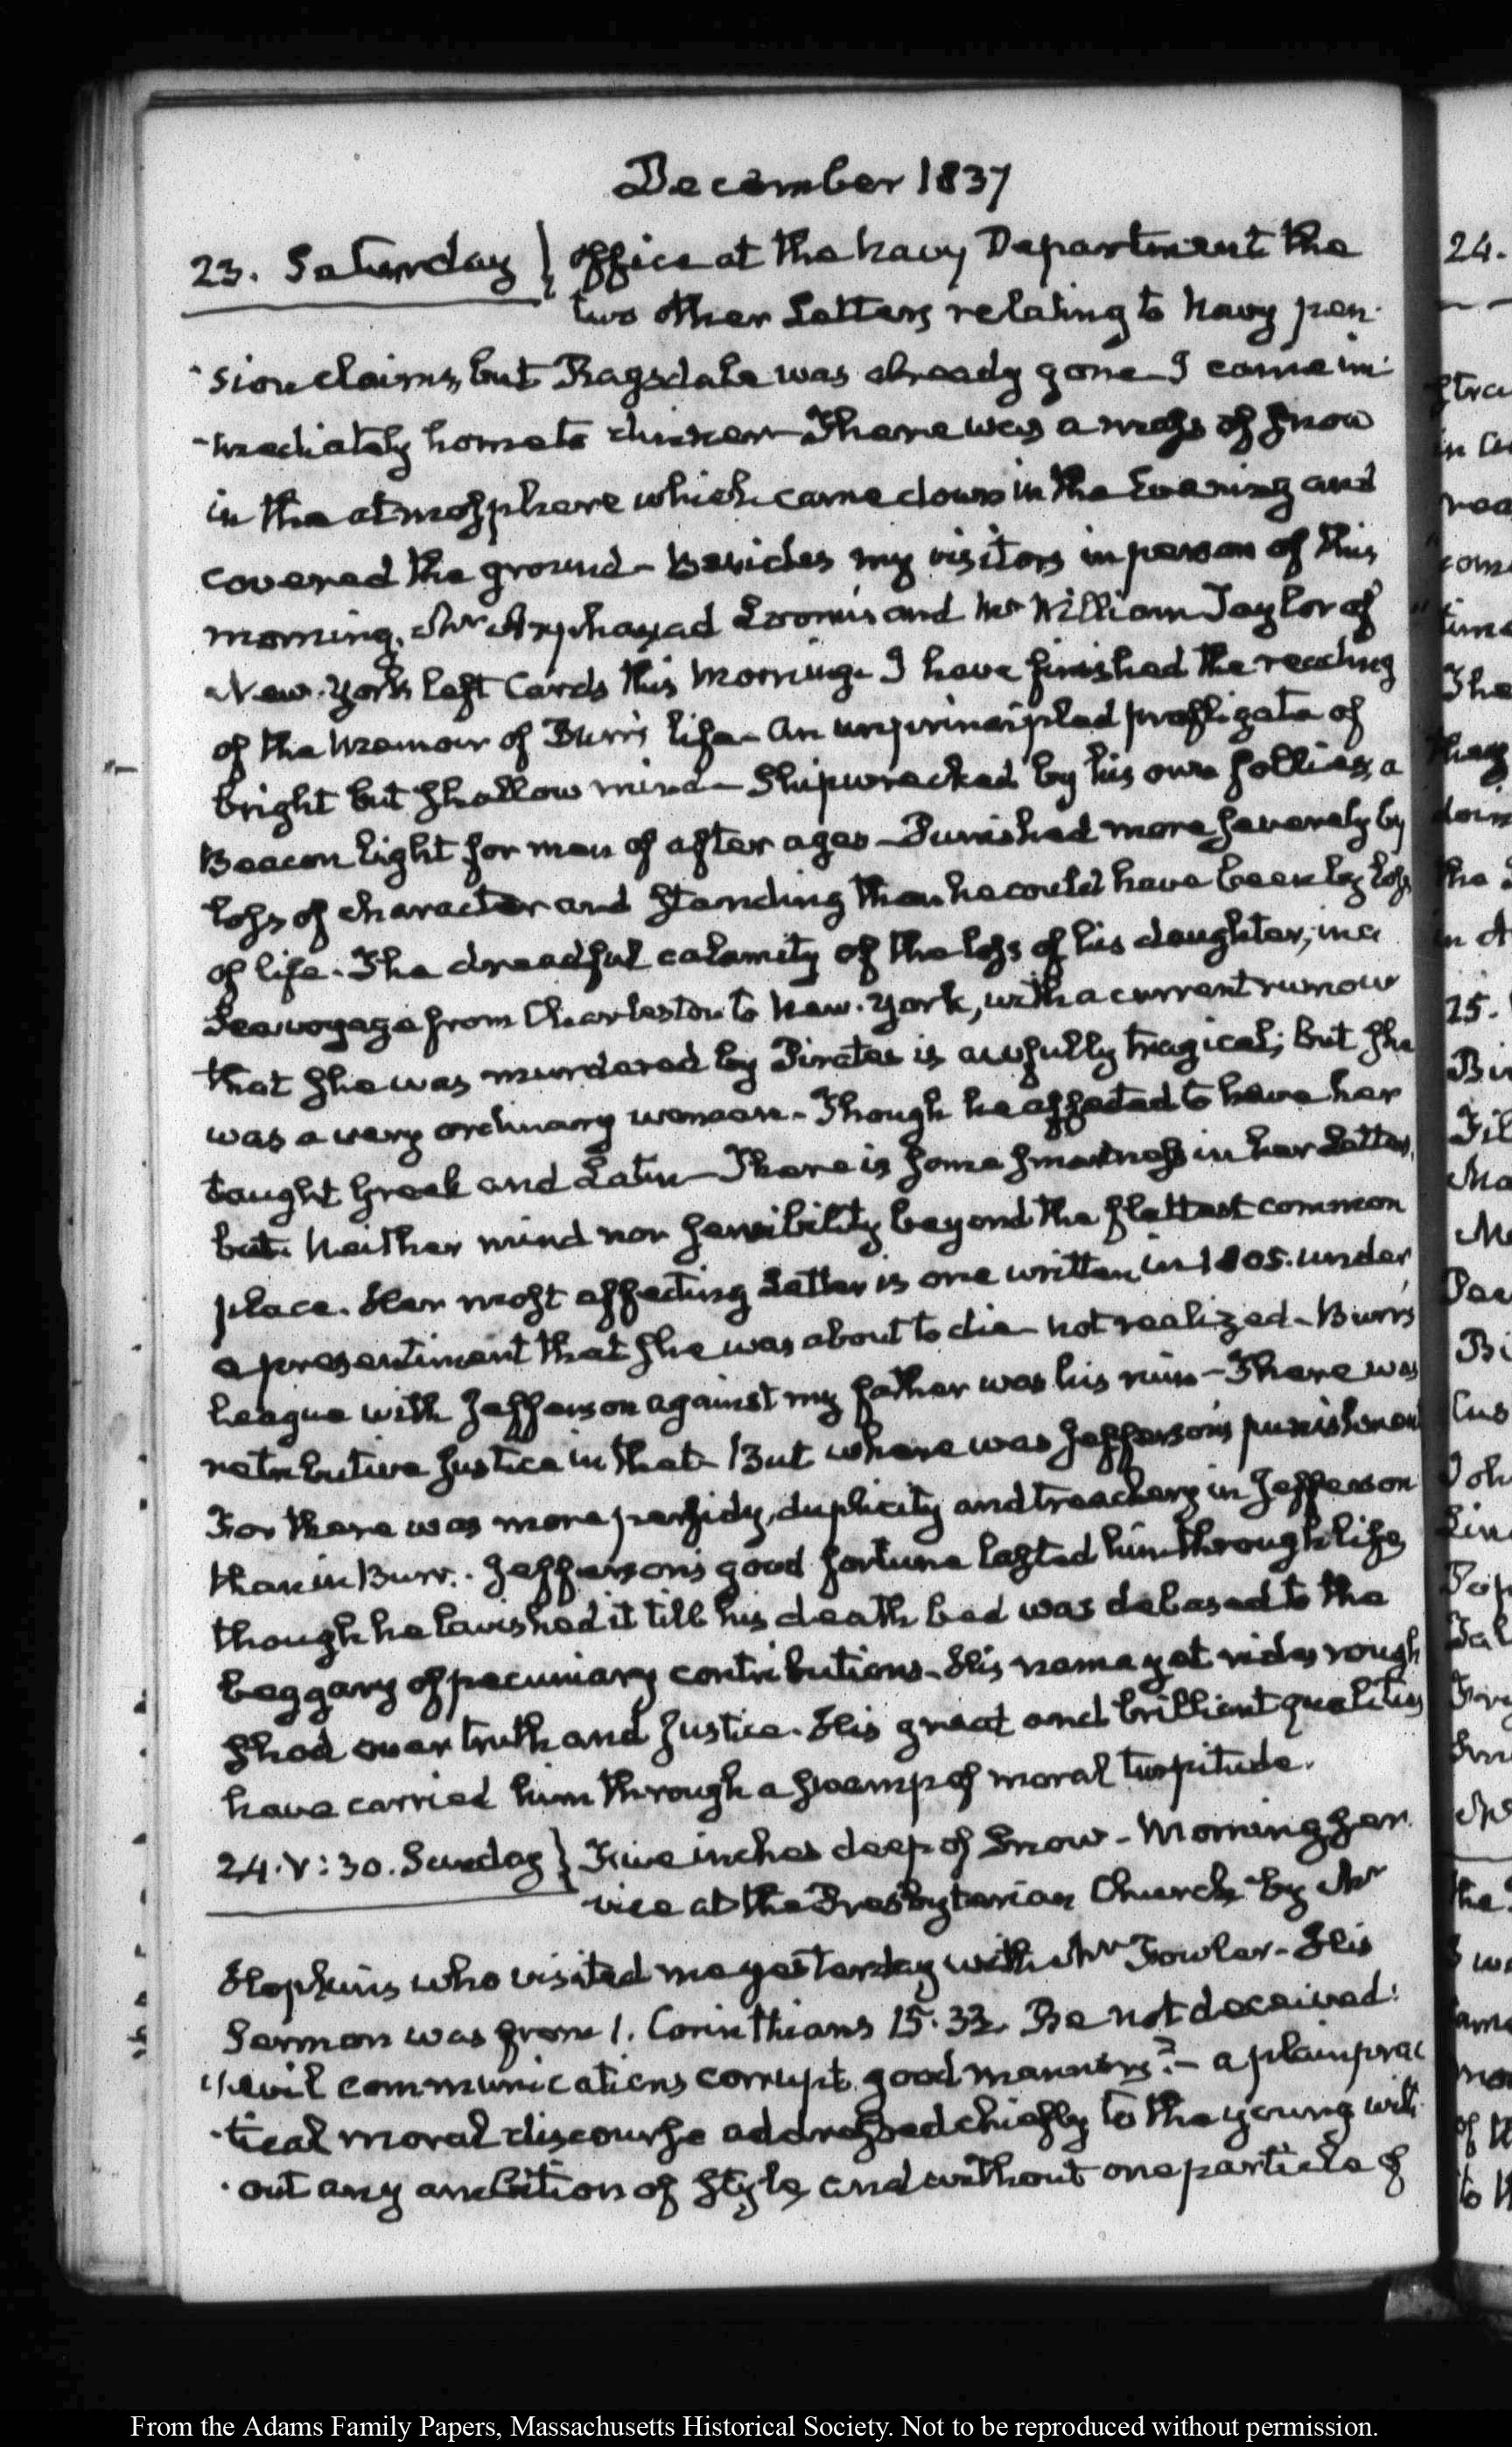 December 1837
23. Saturday } Office at the Navy Department the
two other Letters relating to Navy pen-
-sion claims, but Ragsdale was already gone—I came im-
-mediately home to dinner—There was a mass of snow
in the atmosphere which came down in the Evening and
covered the ground—Besides my visitors in person of this
morning, Mr Arphaxad Loomis and Mr William Taylor of
New-York left Cards this Morning. I have finished the reading
of the Memoir of Burr's life—An unprincipled profligate of
bright but shallow mind—Shipwrecked by his own follies, a
Beacon light for men of after ages—Punished more severely by
loss of character and standing than he could have been by loss
of life. The dreadful calamity of the loss of his daughter, in a
Sea voyage from Charleston to New-York, with a current rumour
that she was murdered by Pirates is awfully tragical; but she
was a very ordinary woman—Though he affected to have her
taught Greek and Latin—There is some smartness in her Letters,
but neither mind nor sensibility beyond the flattest common
place. Her most affecting Letter is one written in 1805. under
a presentiment that she was about to die—not realized—Burr's
league with Jefferson against my father was his ruin—There was
retributive justice in that—But where was Jefferson's punishment
For there was more perfidy, duplicity and treachery in Jefferson
than in Burr. Jefferson's good fortune lasted him through life,
though he lavished it till his death bed was debased to the
beggary of pecuniary contributions—His name yet rides rough
shod over truth and justice. His great and brilliant qualities
have carried him through a swamp of moral turpitude.
24. V:30. Sunday } Five inches deep of Snow—Morning ser-
vice at the Presbyterian Church by Mr
Hopkins who visited me yesterday with Mr Fowler—His
Sermon was from 1. Corinthians 15.33. Be not deceived:
"evil communications corrupt good manners"—a plain prac
-tical moral discourse addressed chiefly to the young with-
-out any ambition of style, and without one particle of
24.
25.
From the Adams Family Papers, Massachusetts Historical Society. Not to be reproduced without permission.